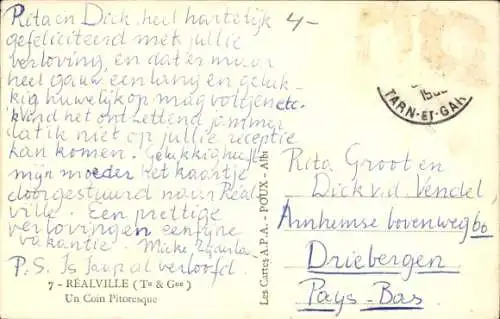 Rita en Dick, heel hartelijk
gefeliciteerd met jullie
verloving, en dat er maar
heel gauw een lang en geluk-
kig huwelijk op mag volgen etc.
k Vond het ontzettend jammer
dat ik niet op jullie receptie
kan komen. Gelukkig heeft
mijn moeder het kaartje
doorgestuurd naar Réal
ville. Een prettige
verlovingen een fijne
vakantie. Mieke
P.S. Is Jaap al verloofd.
7 - RÉALVILLE (Tn & Gne)
Un Coin Pittoresque
4-
Les Cartes A.P.A. - POUX - Albi
TARN-ET-GAR
Rita Groot en
Dick v.d. Vendel,
Arnhemse bovenweg 60
Driebergen
Pays-Bas.